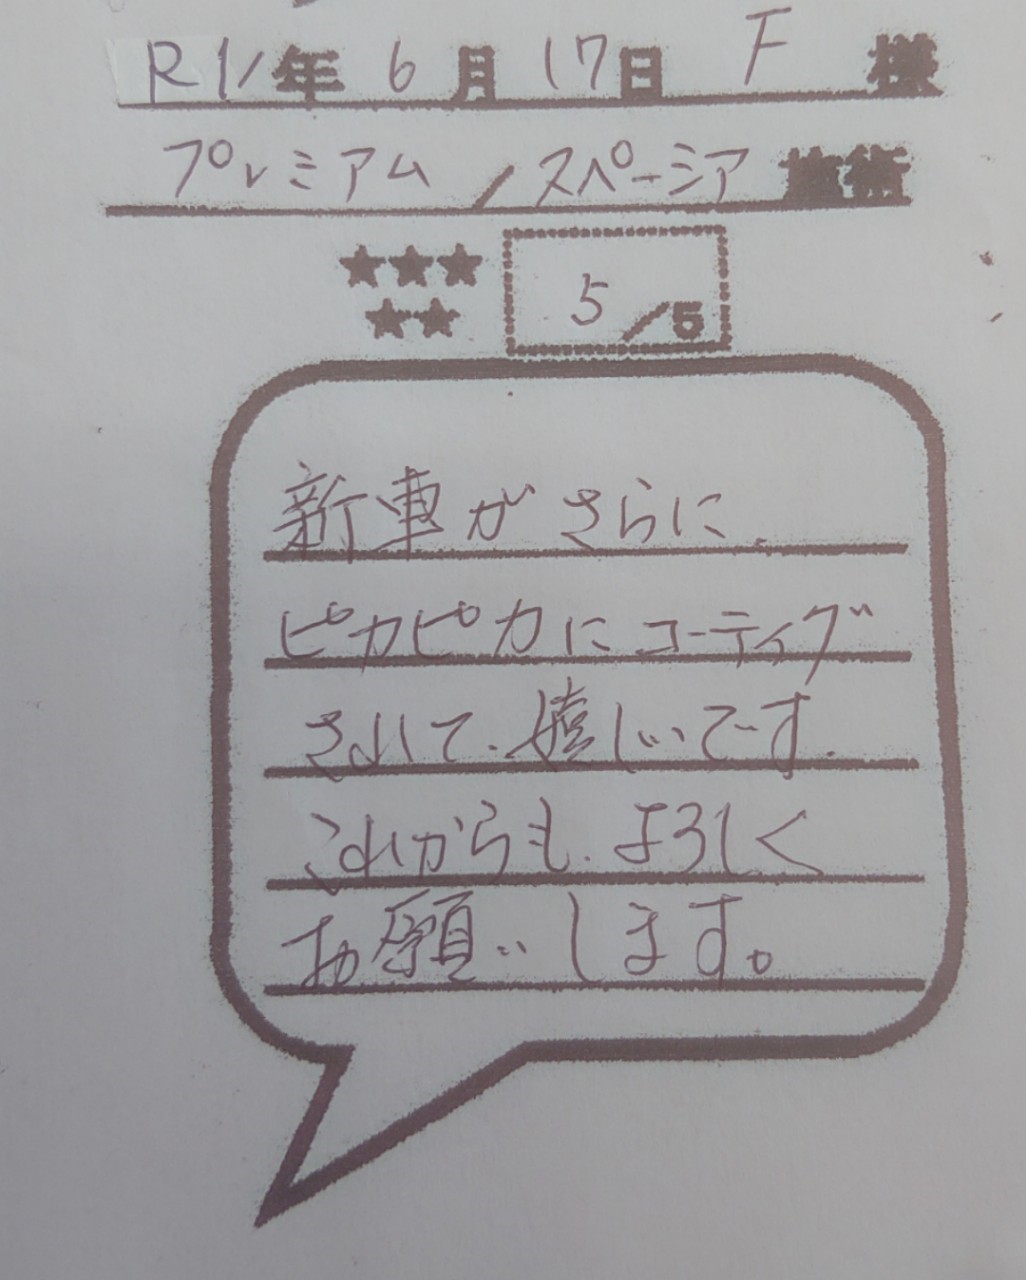 R1年6月17日 F 様
プレミアム/スペーシア 施術
★★★ 5/5
★★
新車がさらに
ピカピカにコーティグ
されて、嬉しいです。
これからも、よろしく
お願いします。